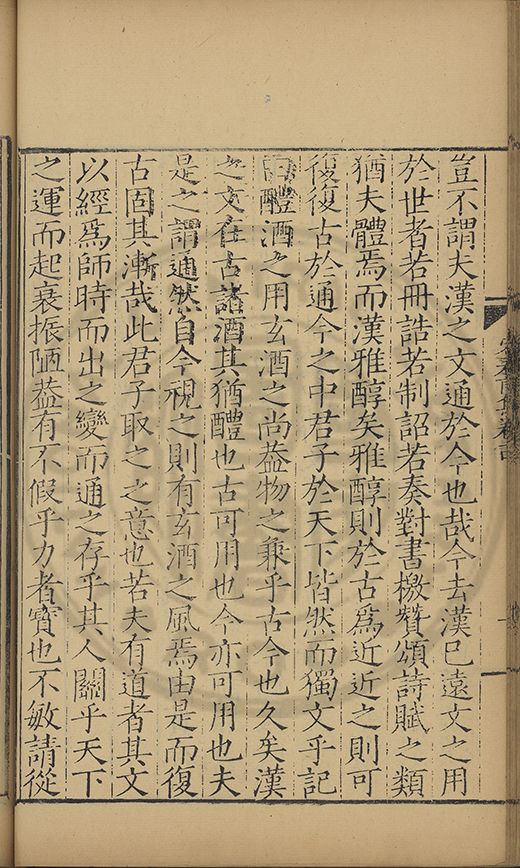 豈不謂大漢之文通於今也哉今去漢已遠文之用
於世者若冊誥若制詔若奏對書檄贊頌詩賦之類
猶夫體焉而漢雅醇矣雅醇則於古爲近近之則可
復復古於通今之中君子於天下皆然而獨文乎記
曰醴酒之用玄酒之尚葢物之兼乎古今也久矣漢
之文在古諸酒其猶醴也古可用也今亦可用也夫
是之謂適然自今視之則有玄酒之風焉由是而復
古固其漸哉此君子取之之意也若夫有道者其文
以經爲師時而出之變而通之存乎其人關乎天下
之運而起衰振陋葢有不假乎力者寶也不敏請從